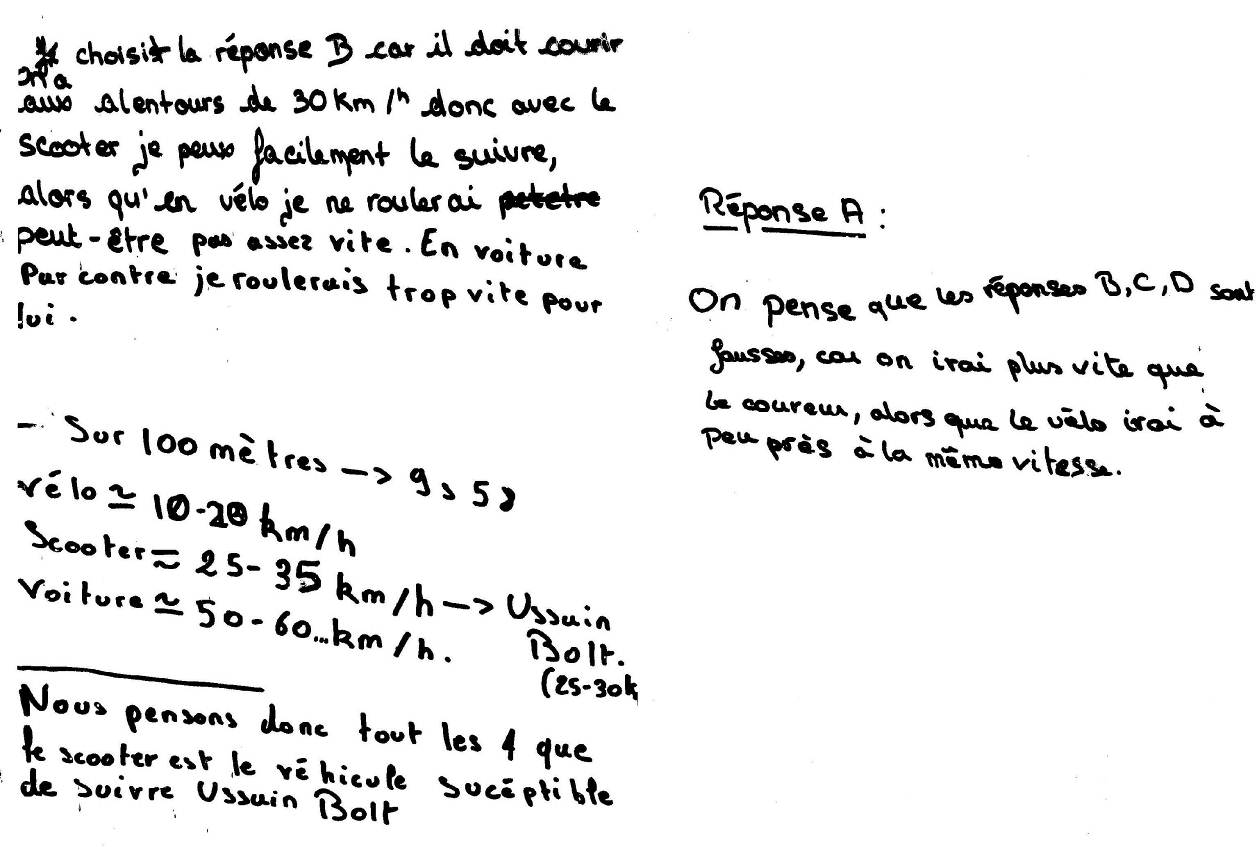 choisit la réponse B car il doit courir
Il a
aux alentours de 30 Km/h donc avec le
scooter je peux facilement le suivre,
alors qu'en vélo je ne roulerai petetre
peut-être pas assez vite. En voiture
Par contre je roulerais trop vite pour
lui.
- Sur 100 mètres -> 9s 58
vélo ≃ 10-20 km/h
Scooter ≃ 25-35 km/h -> Ussain
Bolt.
Voiture ≃ 50-60...km/h.
(25-30k
Nous pensons donc tout les 4 que
le scooter est le véhicule sucéptible
de suivre Ussain Bolt
Réponse A :
On pense que les réponses B, C, D sont
fausses, car on irai plus vite que
le coureur, alors que le vélo irai à
peu près à la même vitesse.